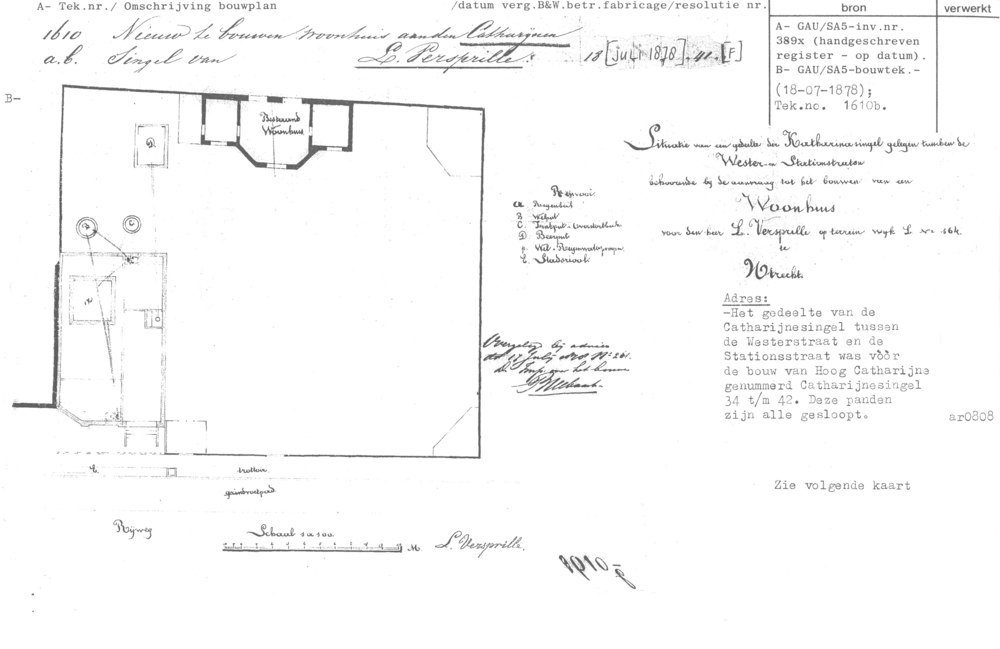 A- Tek.nr./ Omschrijving bouwplan
/datum verg.B&W.betr.fabricage/resolutie nr.
bron
verwerkt
1610 Nieuw te bouwen Woonhuis aan den Catharijnen
a.b. Singel van L. Versprille. 18 [juli 1878]. 41. [F]
A- GAU/SA5-inv.nr.
389x (handgeschreven
register - op datum).
B- GAU/SA5-bouwtek.-
(18-07-1878);
Tek.no. 1610b.
B-
Bestaand
Woonhuis
Situatie van een gedeelte der Katharina singel gelegen tusschen de
Wester- en Stationstraten
behoorende bij de aanvraag tot het bouwen van een
Woonhuis
voor den heer L. Versprille op terrein wijk L No 564.
te
Utrecht.
Renvooi
A Regenbak
B Welput
C.
D Beerput
E. Stadsriool.
Adres:
-Het gedeelte van de
Catharijnesingel tussen
de Westerstraat en de
Stationsstraat was vòòr
de bouw van Hoog Catharijne
genummerd Catharijnesingel
34 t/m 42. Deze panden
zijn alle gesloopt.
ar0808
Overgelegd bij advies
dd 17 Julij 1878 No 261.
Zie volgende kaart
E.
trottoir
Rijweg
Schaal 1 a 100.
M.
L. Versprille.
1610